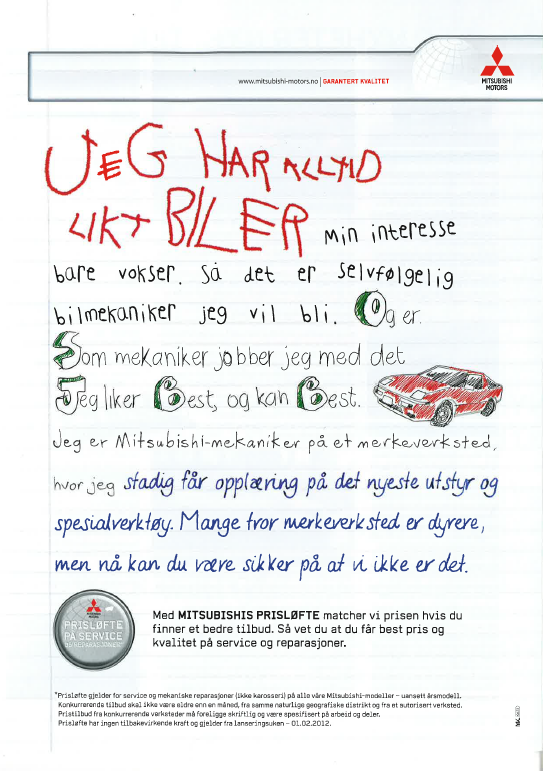 www.mitsubishi-motors.no | GARANTERT KVALITET
MITSUBISHI
MOTORS
JEG HAR ALLTID
LIKT BILER min interesse
bare vokser. Så det er selvfølgelig
bilmekaniker jeg vil bli. Og er.
Som mekaniker jobber jeg med det
Jeg liker Best, og kan Best.
Jeg er Mitsubishi-mekaniker på et merkeverksted,
hvor jeg stadig får opplæring på det nyeste utstyr og
spesialverktøy. Mange tror merkeverksted er dyrere,
men nå kan du være sikker på at vi ikke er det.
PRISLØFTE
PÅ SERVICE
OG REPARASJONER*
Med MITSUBISHIS PRISLØFTE matcher vi prisen hvis du
finner et bedre tilbud. Så vet du at du får best pris og
kvalitet på service og reparasjoner.
*Prisløfte gjelder for service og mekaniske reparasjoner (ikke karosseri) på alle våre Mitsubishi-modeller – uansett årsmodell.
Konkurrerende tilbud skal ikke være eldre enn en måned, fra samme naturlige geografiske distrikt og fra et autorisert verksted.
Pristilbud fra konkurrerende verksteder må foreligge skriftlig og være spesifisert på arbeid og deler.
Prisløfte har ingen tilbakevirkende kraft og gjelder fra lanseringsuken – 01.02.2012.